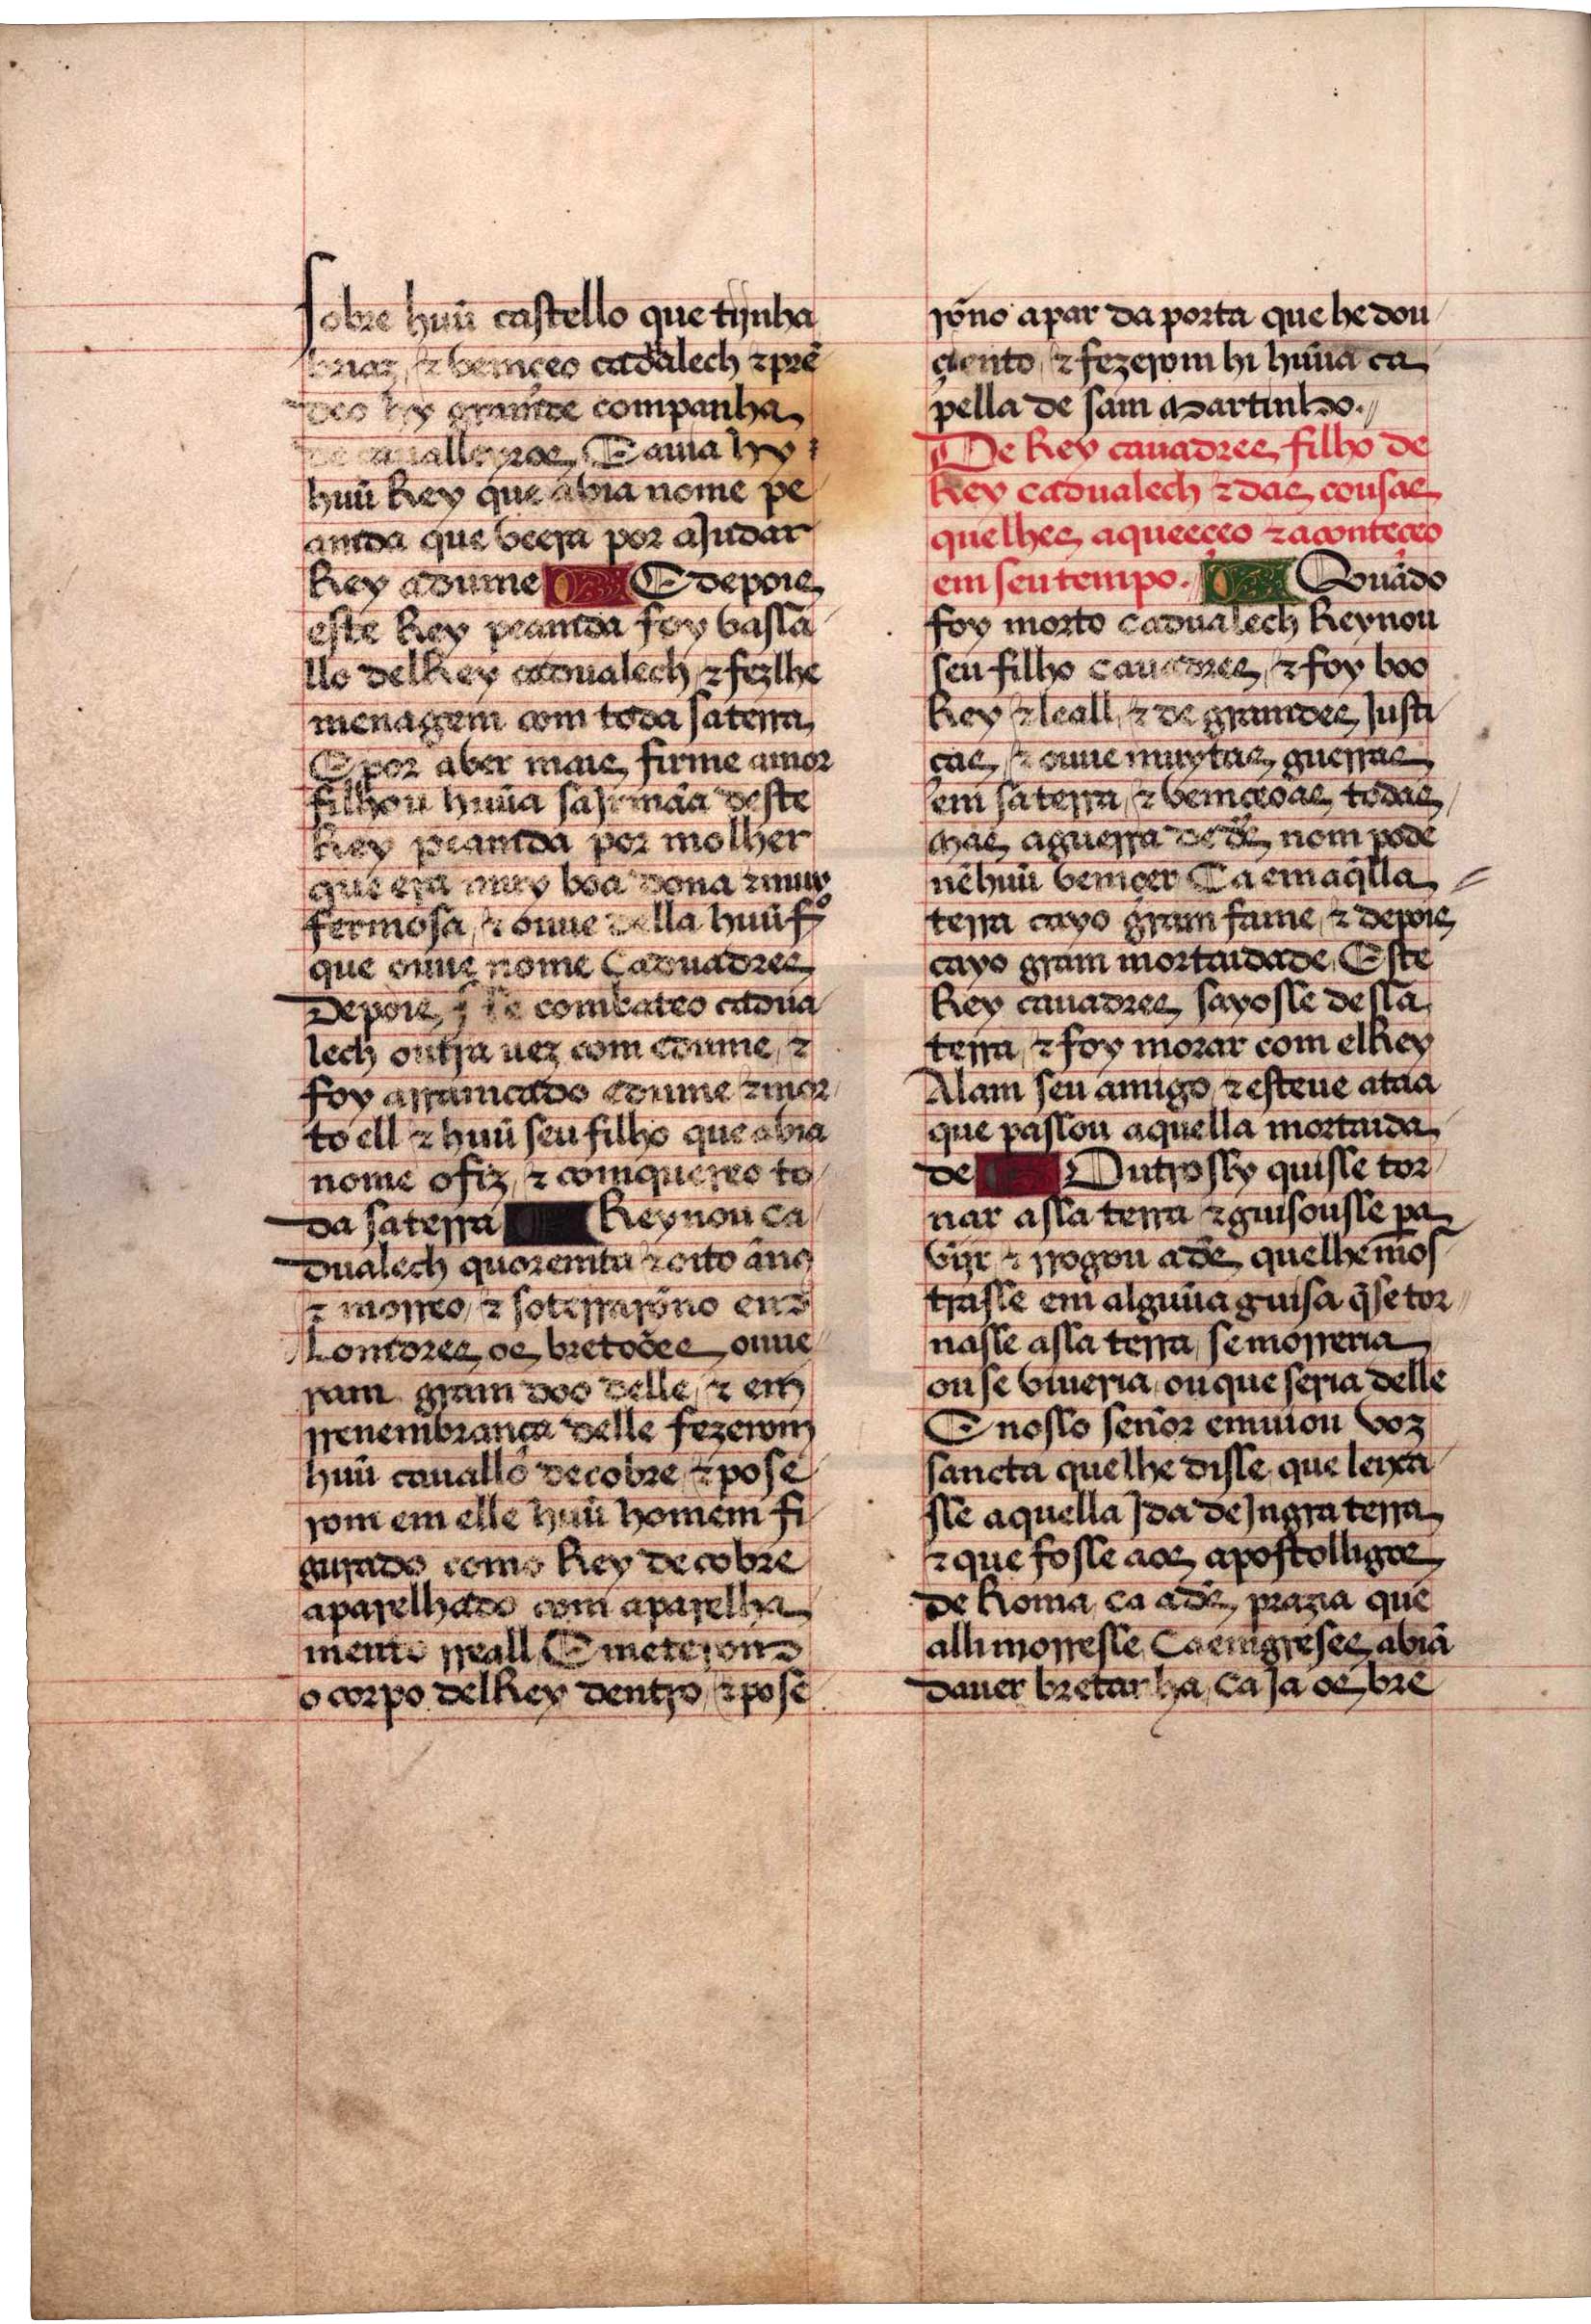 sobre huũ castello que tijnha
briaz, ⁊ bemçeo cadualech ⁊ prẽ
deo hy gramde companha
de caualleyros, E auia hy
huũ Rey que abia nome pe
amda que veera por aJudar
Rey adume E depois
este Rey peamda foy vassa
llo delRey cadualech, ⁊ fezlhe
menagem com toda sa terra,
E por aber mais firme amor
filhou huũa sa Jrmãa deste
Rey peamda por molher
que era muy boa dona ⁊ muy
fermosa, ⁊ ouue della huũ fº
que ouue nome Caduadres
Depois se combateo cadua
lech outra uez com edume, ⁊
foy arramcado edume ⁊ mor
to ell ⁊ huũ seu filho que abia
nome ofiz, ⁊ comquereo to
da sa terra Reynou Ca
dualech quoremta ⁊ oito ãnos
⁊ morreo, ⁊ soterrarõno em
Lomdres, os bretoões ouue
ram gram doo delle, ⁊ em
rrenembrança delle fezerom
huũ cauallo de cobre, ⁊ pose
rom em elle huũ homem fi
gurado como Rey de cobre
aparelhado com aparelha
mento rreall E meterom
o corpo delRey dentro, ⁊ pose
rõno apar da porta que he dou
çiento, ⁊ fezerom hi huũa ca
pella de sam Martinho.
De Rey cauadres filho de
Rey cadualech ⁊ das cousas
que lhes aqueeçeo ⁊ aconteçeo
em seu tempo. Quãdo
foy morto cadualech Reynou
seu filho Cauadres, ⁊ foy boo
Rey ⁊ leall, ⁊ de gramdes Justi
ças, ⁊ ouue muytas guerras
em sa terra, ⁊ bemçeoas todas,
Mas a guerra de dẽs nom pode
nẽhuũ bemçer Ca em aq̃lla
terra cayo gram fame, ⁊ depois
cayo gram mortaidade, Este
Rey cauadres, sayosse dessa
terra, ⁊ foy morar com elRey
Alam seu amigo, ⁊ esteue ataa
que passou aquella mortaida
de Outrossy quisse tor
nar assa terra ⁊ guisousse pa
vijr ⁊ rrogou a dẽs que lhe mos
trasse em alguũa guisa q̃ se tor
nasse assa terra, se morreria
ou se viueria, ou que seria delle
E nosso señor emuiou voz
sancta que lhe disse, que leixa
sse aquella Jda de Jngraterra,
⁊ que fosse aos apostolligos
de Roma, ca a dẽs prazia que
alli morresse, Ca emgreses abiã
dauer bretanha, Ca Ja os bre